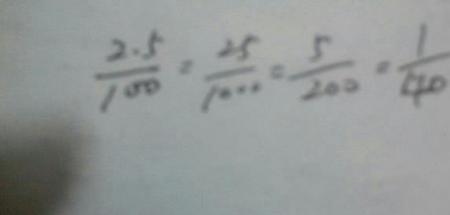 2.5/100 = 25/1000 = 5/200 = 1/40